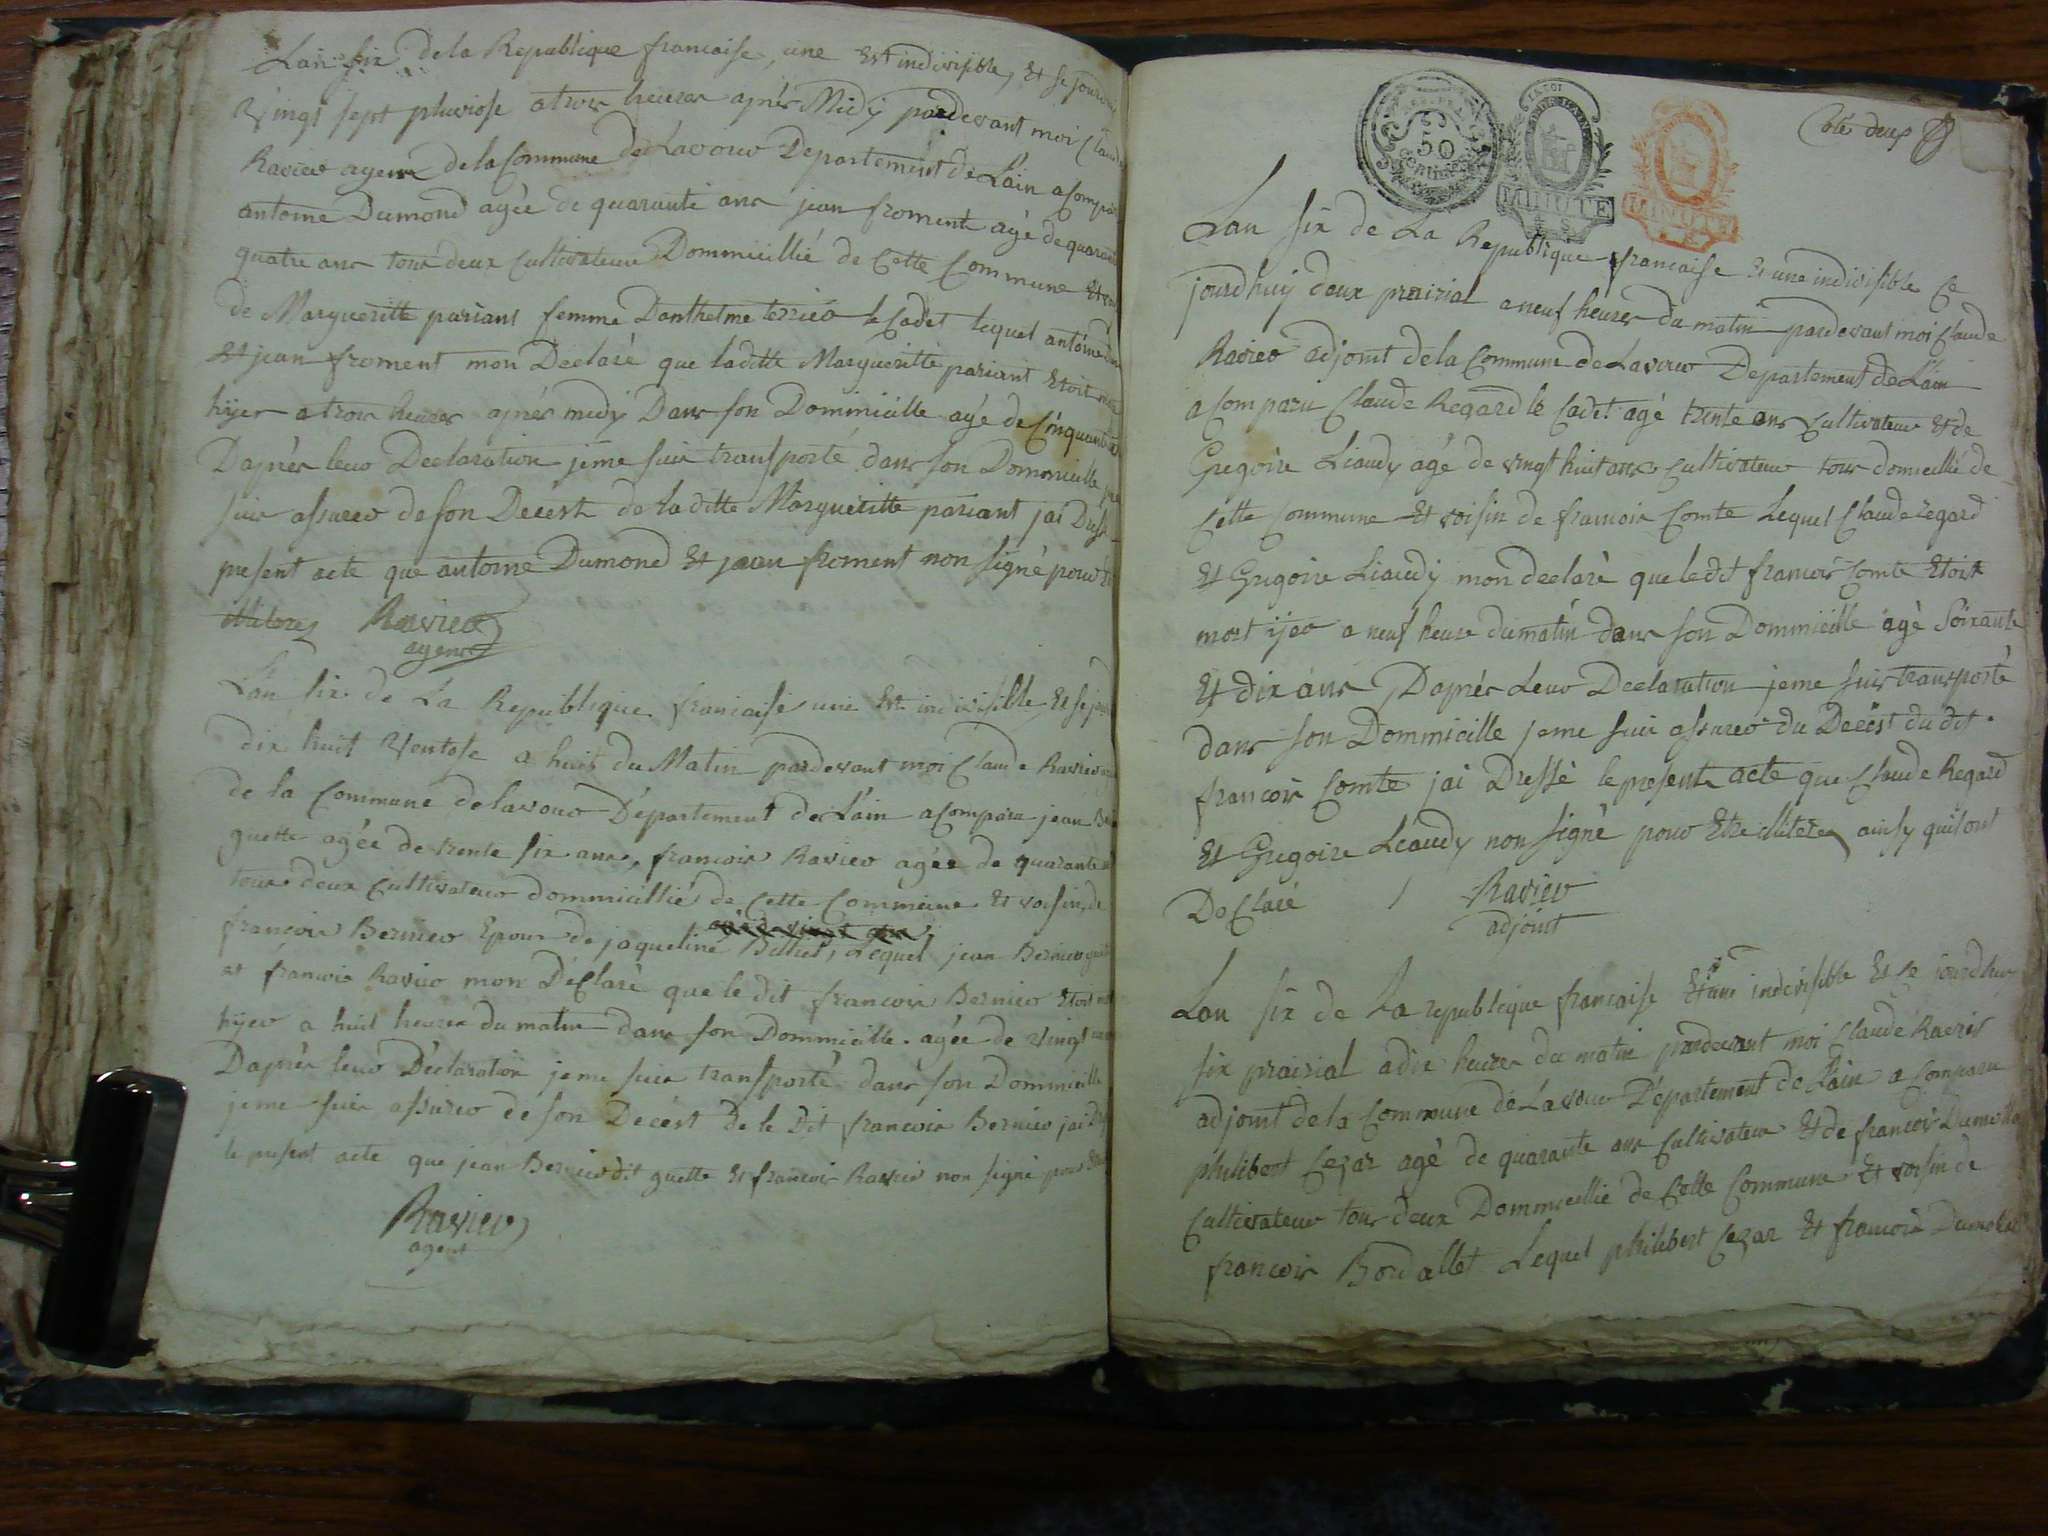 Lan six de la Republique francaise, une Est indivisible, Et se jourdhuy
Vingt sept pluviose a trois heures aprés Midy pardevant moi Claude
Ravier agent de la Commune de Lavour Departement de Lain a Comparu
antoine Dumond agée de quarante ans jean froment agé de quarante
quatre ans tous deux Cultivateur Dommicillié de Cette Commune Et
de Margueritte pariant femme Danthelme terrier le Cadet lequel antoine
Et jean froment mon Declaré que laditte Margueritte pariant Etoit
hyer a trois heures aprés midy Dans son Dommicille agé de Cinquante
Daprés leur Declaration jeme suis transporté dans son Dommicille
suis assurer de son Decest de laditte Margueritte pariant jai Dressé
present acte que antoine Dumond Et jean froment non signé pour
illiterez Ravier
agent
Lan six de La Republique francaise une Est indivisible Et se
dix huit Ventose a huit du Matin pardevant moi Claude Ravier
de la Commune de lavour Département de Lain a Comparu jean
guette agée de trente six ans, francois Ravier agée de quarante
tous deux Cultivateur dommicillié de Cette Commune Et voisin de
francois Bernier Epoux de jaqueline Billiet, Lequel jean Bernier
et francois Ravier mon Déclaré que le dit francois Bernier Etoit
hyer a huit heures du matin dans son Dommicille agée de Vingt
Daprés leur Déclaration jeme suis transporté dans son Dommicille
jeme suis assurer de son Decest de le Dit francois Bernier jai
le present acte que jean Bernier dit guette Et francois Ravier non signé pour
Ravier
agent
50
CENTIMES
LA LOI
MINUTE
MINUTE
Coté deux
Lan six de La Republique francaise Et une indivisible Ce
jourdhuy deux prairial a neuf heures du matin pardevant moi Claude
Ravier adjoint de la Commune de Lavour Departement de Lain
a Comparu Claude Regard le Cadet agé trente ans Cultivateur Et de
Gregoire Liaudy agé de vingt huit ans Cultivateur tous domicillié de
Cette Commune Et voisin de francois Comte Lequel Claude regard
Et Gregoire Liaudy mon declaré que ledit francois Comte Etoit
mort ijer a neuf heure du matin dans son Dommicille agé Soixante
Et dix ans Daprés Leur Declaration jeme suis transporté
dans son Dommicille jeme suis assurer du Decest du dit
francois Comte jai Dressé le presente acte que Claude Regard
Et Gregoire Leaudy non signé pour Etre illiterez ainsy quil ont
Declaré / Ravier
adjoint
Lan six de La republique francaise Et une indivisible Et se jourdhuy
six prairial a dix heures du matin pardevant moi Claude Ravier
adjoint de la Commune de Lavour Département de Lain a Comparu
philibert Cezar agé de quarante ans Cultivateur Et de francois Dumollar
Cultivateur tous deux Dommicillié de Cette Commune Et voisin de
francois Bordallet Lequel philibert Cezar Et francois Dumollar